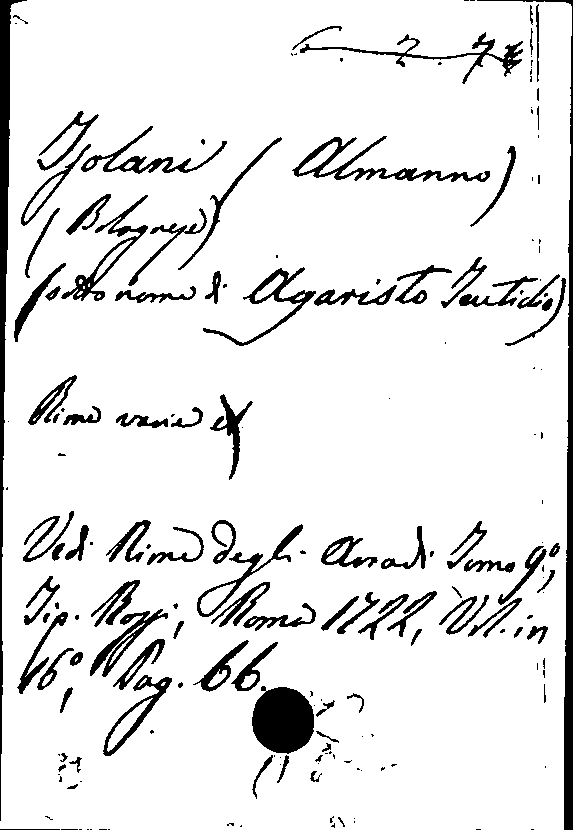 6. 2. 7
Isolani (Almanno)
(Bolognese)
(sotto nome di Agaristo Teutidio)
Rime varie
Vedi Rime degli Arcadi Tomo 9º,
Tip. Rossi, Roma 1722, Vol. in
16º, Pag. 66.